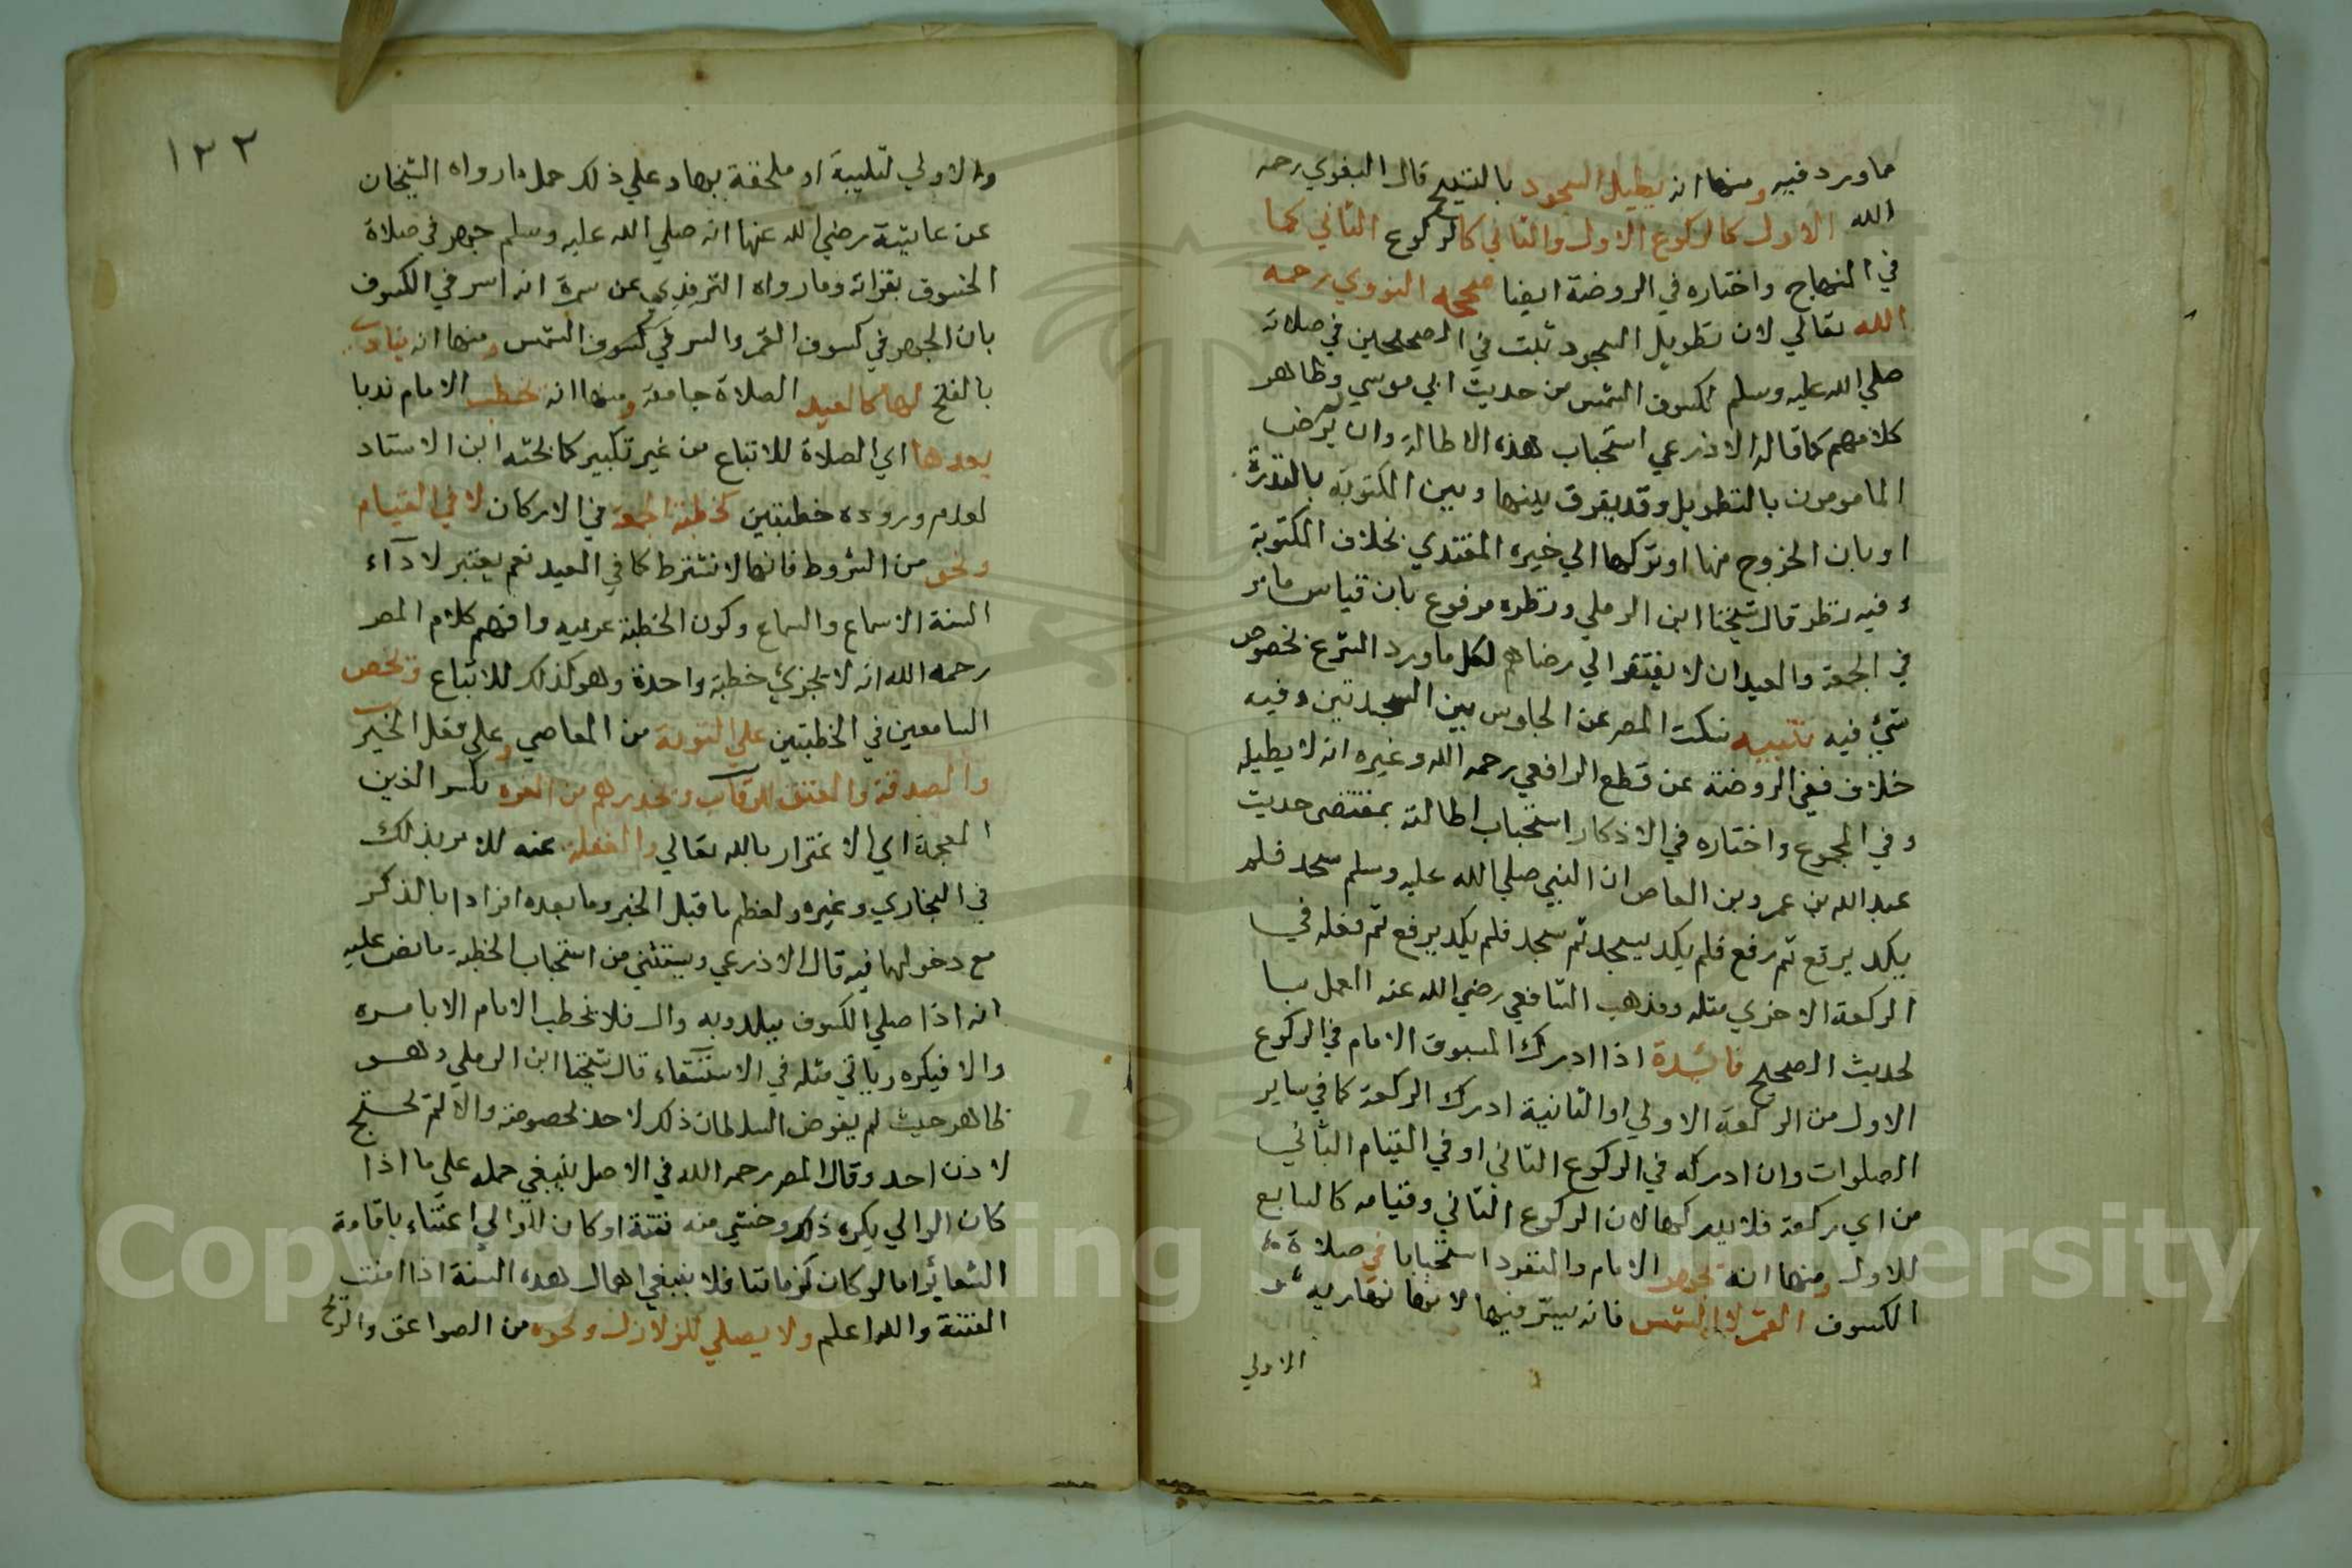 ما ورد فيه ومنها انه يطيل السجود بالتسبيح قال البغوي رحمه
الله الاول كالركوع الاول والثاني كالركوع الثاني كما
في المنهاج واختاره في الروضة ايضا صححه النووي رحمه
الله تعالي لان تطويل السجود ثبت في الصحيحين في صلاته
صلي الله عليه وسلم لكسوف الشمس من حديث ابي موسي وظاهر
كلامهم كما قاله الاذرعي استحباب هذه الاطالة وان لم يرض
المامومون بالتطويل وقد يفرق بينها وبين المكتوبة بالندرة
او بان الخروج منها او تركها الي خيره المقتدي بخلاف المكتوبة
وفيه نظر قال شيخنا ابن الرملي ونظره مرفوع بان قياس ما مر
في الجمعة والعيد ان لا يفتقر الي رضاهم لكل ما ورد الشرع بخصوص
شيء فيه تنبيه سكت المصر عن الجلوس بين السجدتين وفيه
خلاف ففي الروضة عن قطع الرافعي رحمه الله وغيره انه لا يطيله
وفي المجموع واختاره في الاذكار استحباب اطالته بمقتضى حديث
عبد الله بن عمرو بن العاص ان النبي صلي الله عليه وسلم سجد فلم
يكد يرفع ثم رفع فلم يكد يسجد ثم سجد فلم يكد يرفع ثم فعله في
الركعة الاخري مثله ومذهب الشافعي رضي الله عنه العمل بما
لحديث الصحيح فائدة اذا ادرك المسبوق الامام في الركوع
الاول من الركعة الاولي او الثانية ادرك الركعة كما في ساير
الصلوات وان ادركه في الركوع الثاني او في القيام الثاني
من اي ركعة فلا يدركها لان الركوع الثاني وقيامه كالتابع
للاول ومنها انه يجهر الامام والمنفرد استحبابا في صلاة
الكسوف القمر لا الشمس فانه يسر فيها لانها نهارية
الاولي
١٣٢
والاولي لتليية او ملحقة بها وعلي ذلك حمل ما رواه الشيخان
عن عايشة رضي الله عنها انه صلي الله عليه وسلم جهر في صلاة
الخسوف بقراته وما رواه الترمذي عن سمرة انه اسر في الكسوف
بان الجهر في كسوف القمر والسر في كسوف الشمس ومنها انه ينادي
بالفتح لها كالعيد الصلاة جامعة ومنها انه يخطب الامام ندبا
بعدها اي الصلاة للاتباع من غير تكبير كما بحثه ابن الاستاد
لعدم وروده خطبتين كخطبة الجمعة في الاركان لا في القيام
ونحو من الشروط فانها لا تشترط كما في العيد نعم يعتبر لادآء
السنة الاسماع والسماع وكون الخطبة عربيه وافهم كلام المصر
رحمه الله انه لا تجزئ خطبة واحدة وهو كذلك للاتباع وتخص
السامعين في الخطبتين علي التوبة من المعاصي وعلي فعل الخير
والصدقة والعتق للرقاب وتحذرهم من الغره بكسر الذين
المعجمة اي الاغترار بالله تعالي والغفلة عنه للامر بذلك
في البخاري وغيره ولعظم ما قبل الخبر وما بعده افرادا بالذكر
مع دخولها فيه قال الاذرعي ويستثني من استحباب الخطبة ما نص عليه
انه اذا صلي الكسوف ببلد وبه وال فلا يخطب الامام الا بامره
والا فيكره ويأتي مثله في الاستسقاء قال شيخنا ابن الرملي وهو
ظاهر حيث لم يفوض السلطان ذلك لاحد لخصوصه والا لم يحتج
لاذن احد وقال المصر رحمه الله في الاصل ينبغي حمله علي ما اذا
كان الوالي يكره ذلك وخشي منه فتنة او كان للوالي اعتناء باقامة
الشعائر اما لو كان كزماننا فلا ينبغي اهمال هذه السنة اذا امنت
الفتنة والله اعلم ولا يصلي للزلازل ونحوه من الصواعق والريح